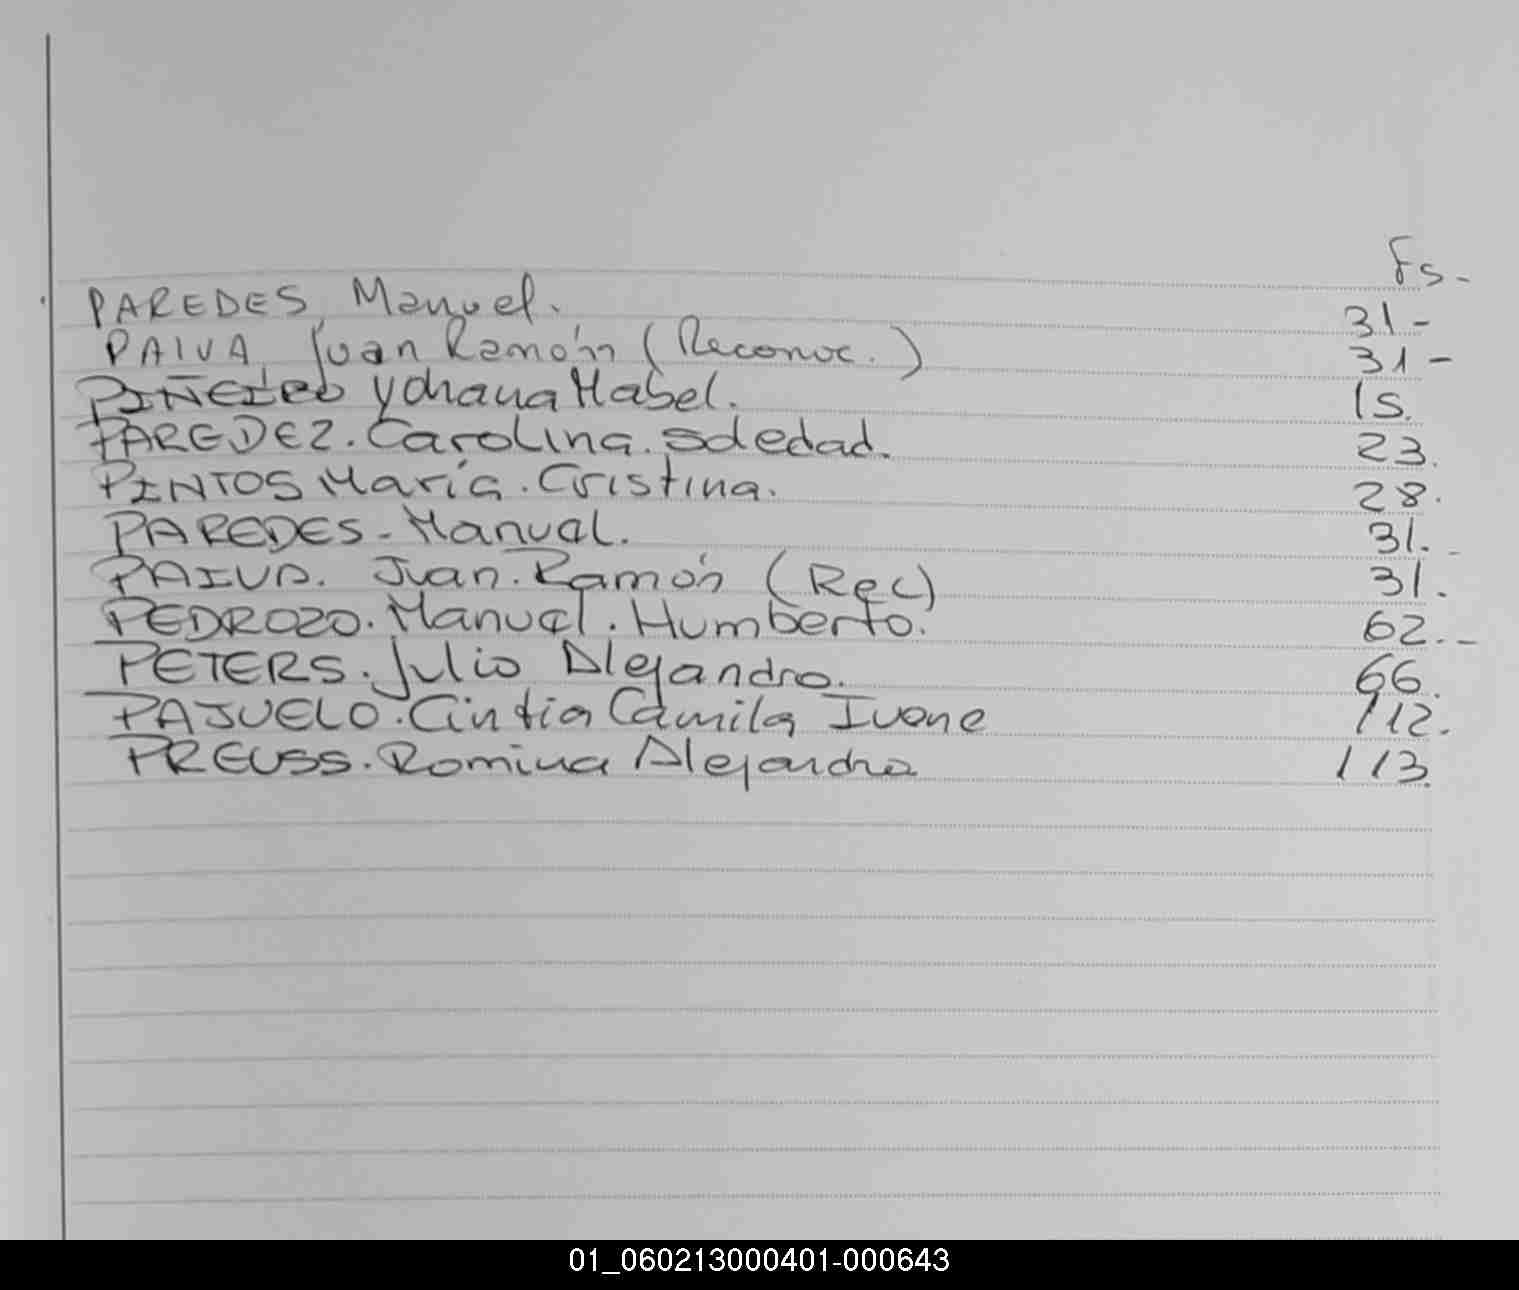 Fs-
PAREDES, Manuel. 31-
PAIVA, Juan Ramón (Reconoc.) 31-
PIÑEIRO Yohana Mabel. 15.
PAREDEZ. Carolina. Soledad. 23.
PINTOS María. Cristina. 28.
PAREDES- Manuel. 31.-
PAIVA. Juan. Ramón (Rec) 31.
PEDROZO. Manuel. Humberto. 62.-
PETERS. Julio Alejandro. 66.
PAJUELO. Cintia Camila Ivone 112.
PREUSS. Romina Alejandra 113.
01_060213000401-000643